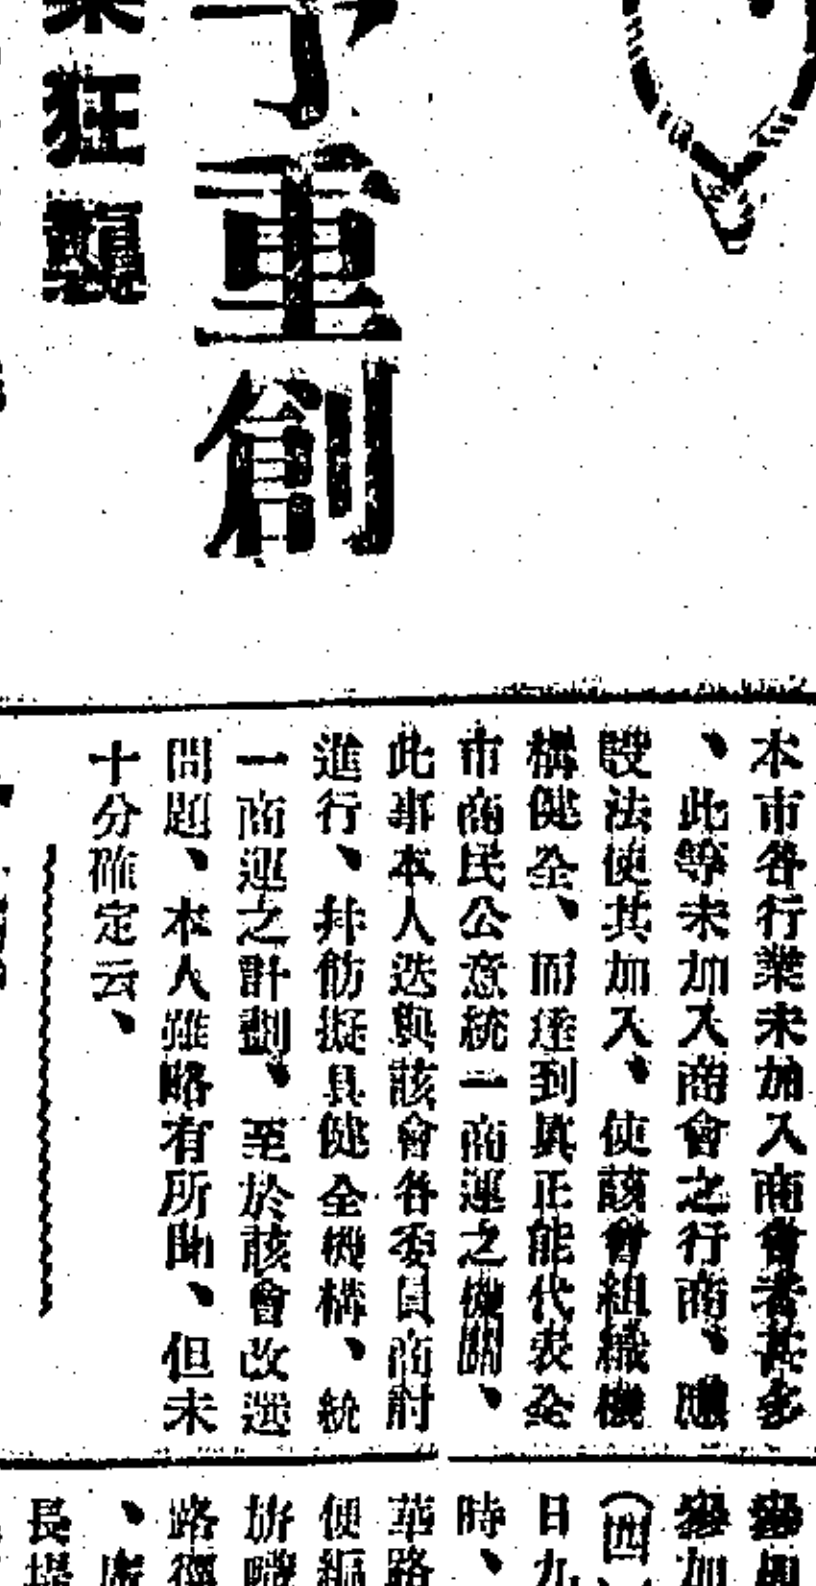 予重創
狂襲
本市各行業未加入商會者甚多
、此等未加入商會之行商、應
設法使其加入、使該會組織機
構健全、而達到眞正能代表全
市商民公意統一商運之機關、
此事本人迭與該會各委員商討
進行、幷飭擬具健全機構、統
一商運之計劃、至於該會改選
問題、本人雖略有所聞、但未
十分確定云、
參加
參加
(四)
日九
時、
華路
便
路
、
長堤